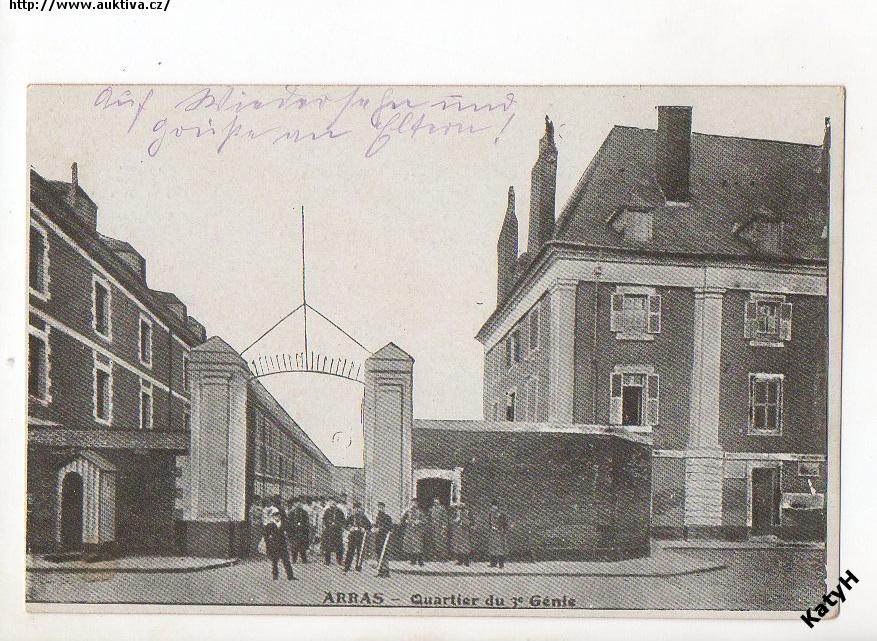 http://www.auktiva.cz/
Auf Wiedersehn und
Grüße an Eltern!
ARRAS – Quartier du 3e Génie
KatyH